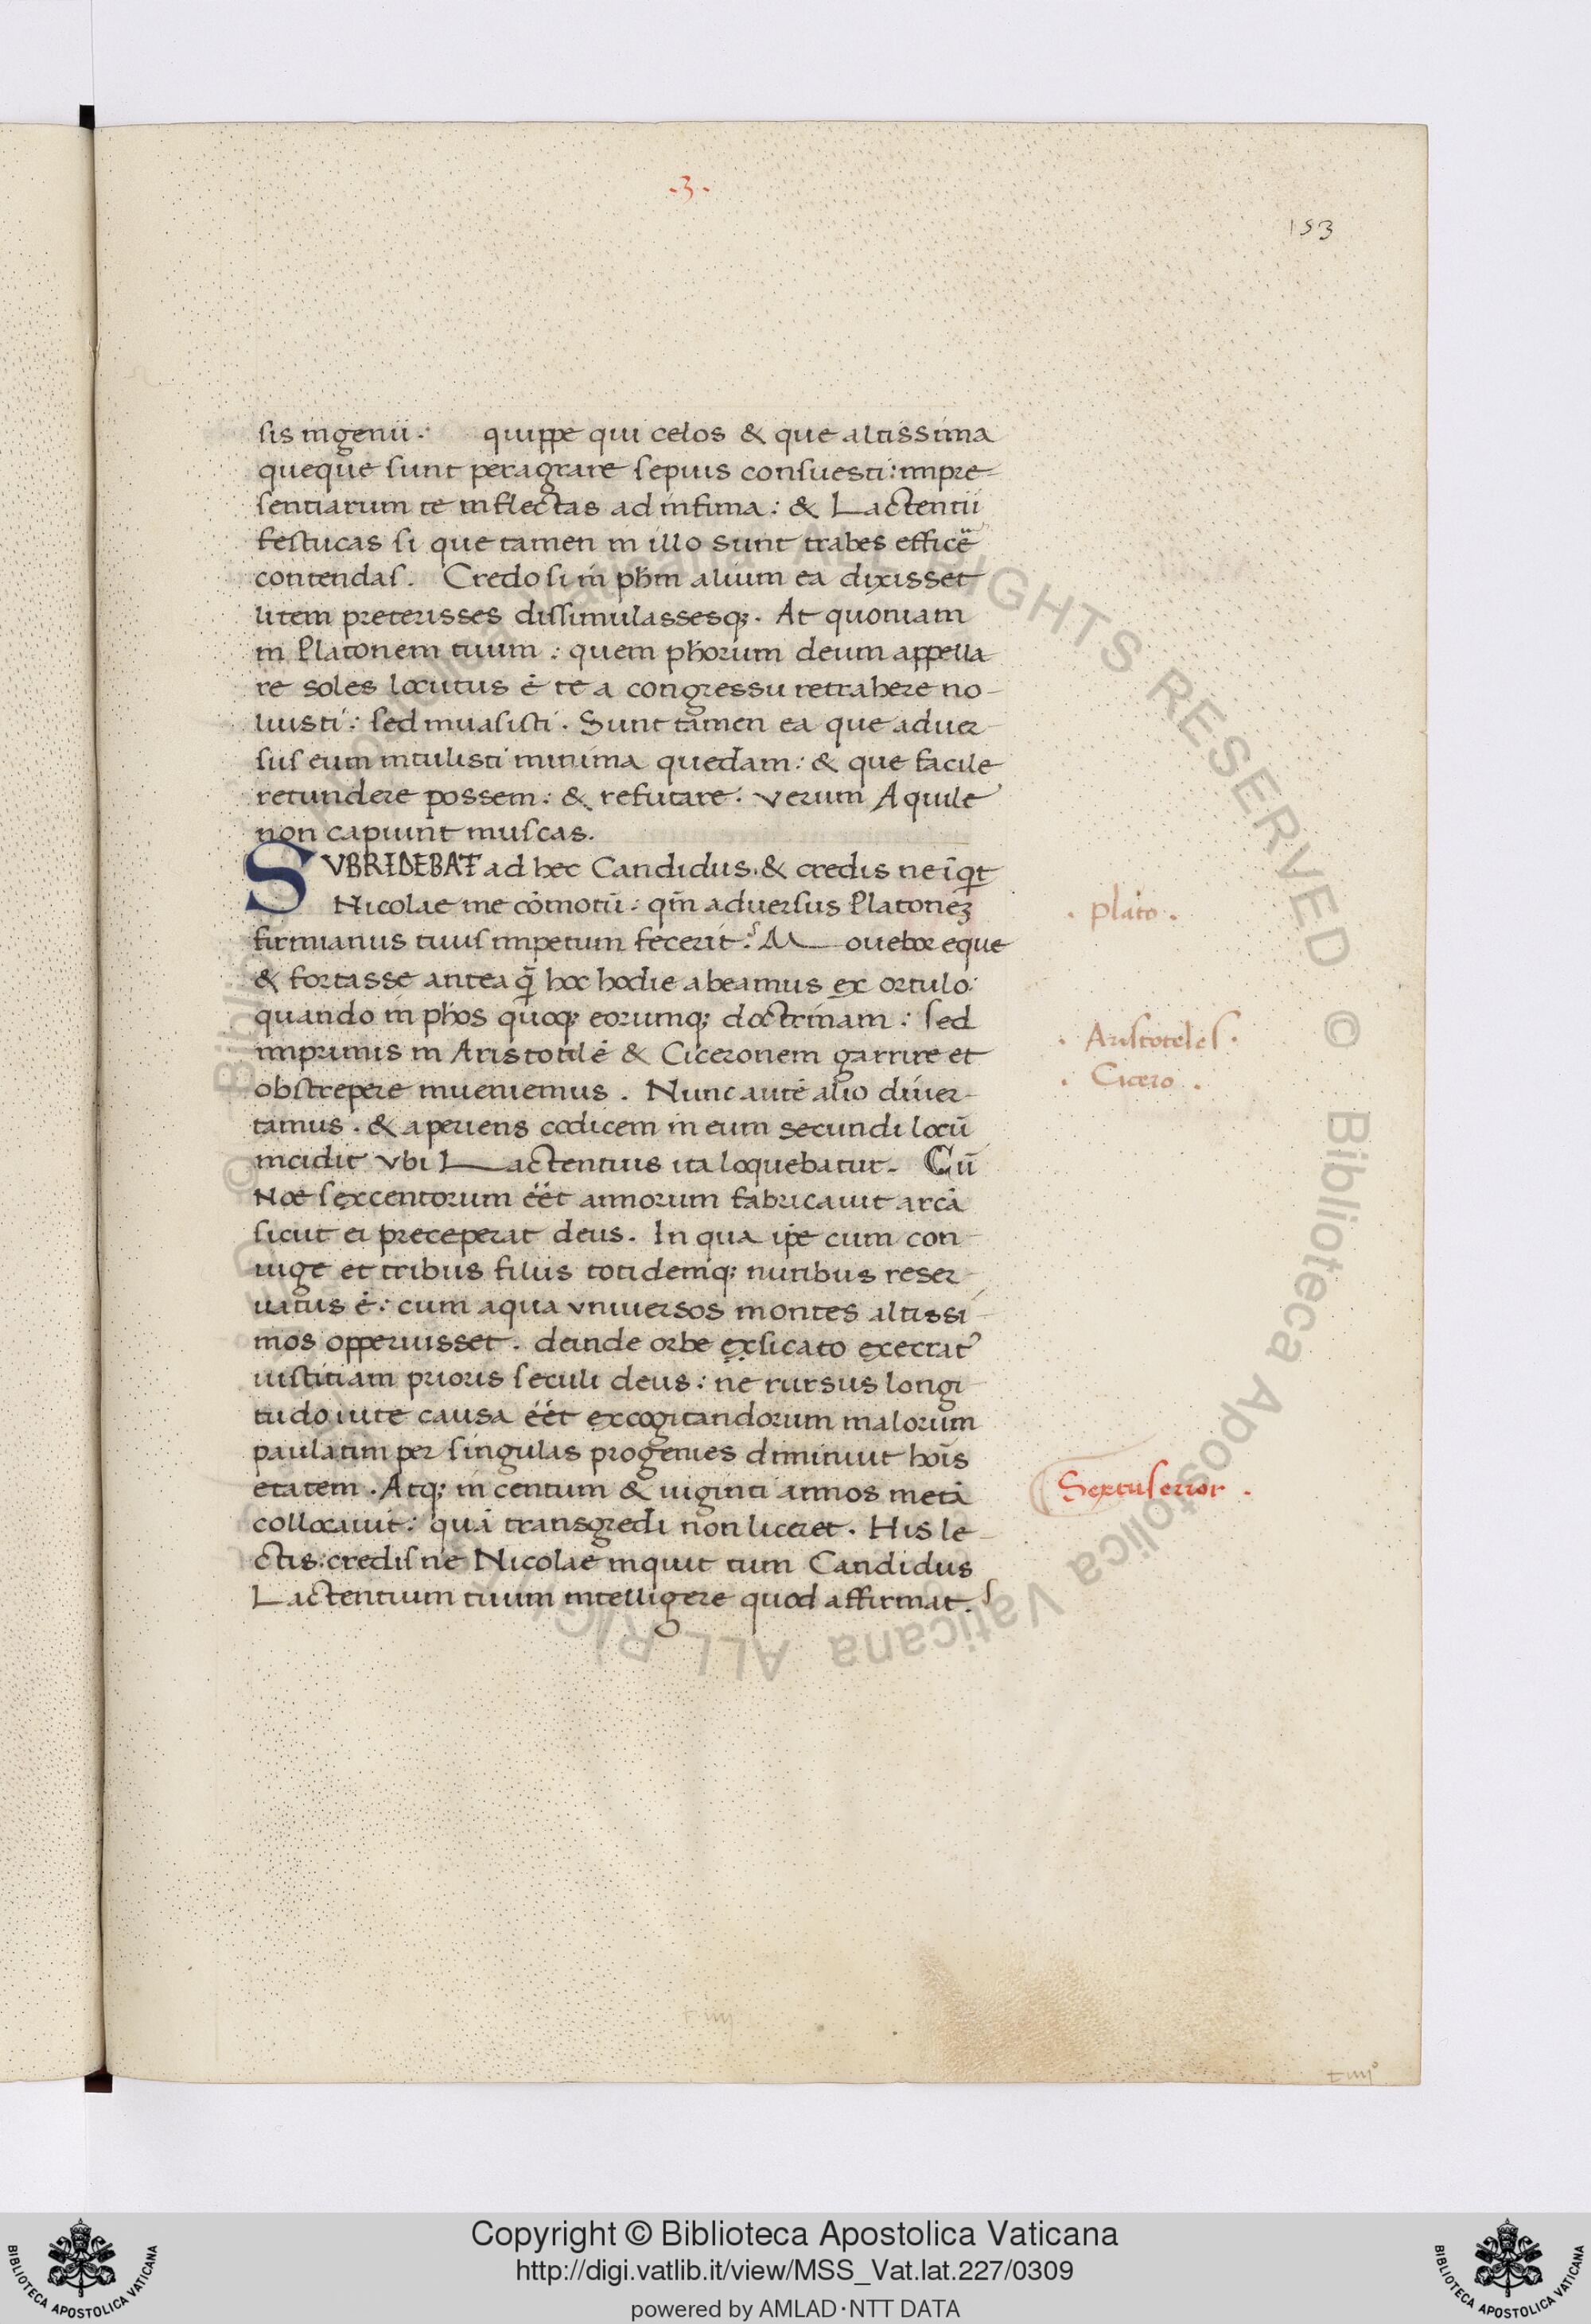 .3.
153
sis ingenii: quippe qui celos & que altissima
queque sunt peragrare sepius consuesti: impre-
sentiarum te inflectas ad infima: & Lactentii
festucas si que tamen in illo sunt trabes efficē
contendas. Credo si in phm alium ea dixisset
litem preterisses dissimulassesq;. At quoniam
in Platonem tuum: quem phorum deum appella-
re soles locutus ē te a congressu retrahere no-
luisti: sed inuasisti. Sunt tamen ea que aduer-
sus eum intulisti minima quedam: & que facile
retundere possem: & refutare. verum Aquile
non capiunt muscas.
SVBRIDEBAT ad hec Candidus. & credis ne iqt
Nicolae me cōmotū: qm̄ aduersus Platonez
firmianus tuus impetum fecerit? Mouebor eque
& fortasse antea q̄ hoc hodie abeamus ex ortulo:
quando in phos quoq; eorumq; doctrinam: sed
imprimis in Aristotilē & Ciceronem garrire et
obstrepere inueniemus. Nunc autē alio diuer-
tamus. & aperiens codicem in eum secundi locū
incidit vbi Lactentius ita loquebatur. Cū
Noe sexcentorum eēt annorum fabricauit arcā
sicut ei preceperat deus. In qua ipe cum con-
iuge et tribus filiis totidemq; nuribus reser-
uatus ē: cum aqua vniuersos montes altissi-
mos opperuisset. deinde orbe exsicato execrat᾽
iustitiam prioris seculi deus: ne rursus longi-
tudo uite causa eēt excogitandorum malorum
paulatim per singulas progenies diminuit hois
etatem. Atq; in centum & uiginti annos metā
collocauit: quā transgredi non liceret. His le-
ctis: credis ne Nicolae inquit tum Candidus
Lactentium tuum intelligere quod affirmat?
. plato .
. Aristoteles .
. Cicero .
Sextus error .
Copyright © Biblioteca Apostolica Vaticana
http://digi.vatlib.it/view/MSS_Vat.lat.227/0309
powered by AMLAD·NTT DATA
BIBLIOTECA APOSTOLICA VATICANA
BIBLIOTECA APOSTOLICA VATICANA
© Biblioteca Apostolica Vaticana ALL RIGHTS RESERVED
© Biblioteca Apostolica Vaticana ALL RIGHTS RESERVED